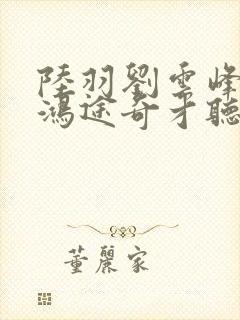 陸羽劉雲峰
鴻途奇才聽
董麗家